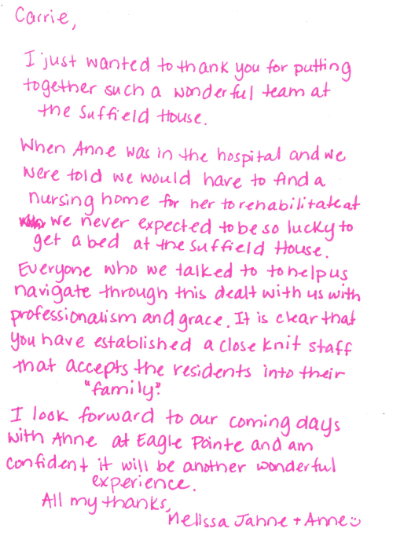 Carrie,
I just wanted to thank you for putting
together such a wonderful team at
the Suffield House.
When Anne was in the hospital and we
were told we would have to find a
nursing home for her to rehabilitate at
we never expected to be so lucky to
get a bed at the Suffield House.
Everyone who we talked to to help us
navigate through this dealt with us with
professionalism and grace. It is clear that
you have established a close knit staff
that accepts the residents into their
"family."
I look forward to our coming days
with Anne at Eagle Pointe and am
confident it will be another wonderful
experience.
All my thanks,
Melissa Jahne + Anne